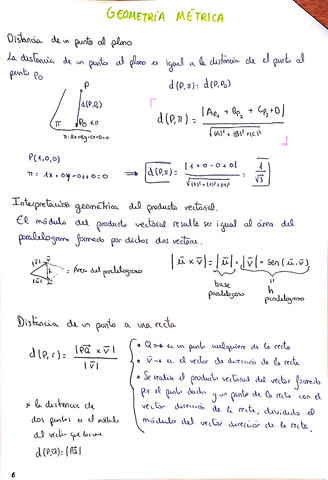 GEOMETRÍA MÉTRICA
Distancia de un punto al plano
La distancia de un punto al plano es igual a la distancia de el punto al
punto P₀
P
d(P,P₀)
P₀ ∈ π
π
π: Ax+By+Cz+D=0
d(P,π) = d(P,P₀)
d(P,π) = |AP₁ + BP₂ + CP₃ + D| / √((A)² + (B)² + (C)²)
P(1,0,0)
⟹ d(P,π) = |1+0-0+0| / √((1)²+(1)²+(1)²) = 1/√3
Interpretación geométrica del producto vectorial.
El módulo del producto vectorial resulta ser igual al área del
paralelogramo formado por dichos dos vectores.
= Área del paralelogramo
|u × v| = |u| · |v| · sen(u,v)
base
paralelogramo
h
paralelogramo
Distancia de un punto a una recta
d(P,r) = |PQ × v| / |v|
• Q → es un punto cualquiera de la recta
• v → es el vector de dirección de la recta
• Se realiza el producto vectorial del vector formado
por el punto dado y un punto de la recta con el
vector dirección de la recta, dividido el
módulo del vector dirección de la recta.
* la distancia de
dos puntos es el módulo
del vector que los une
6